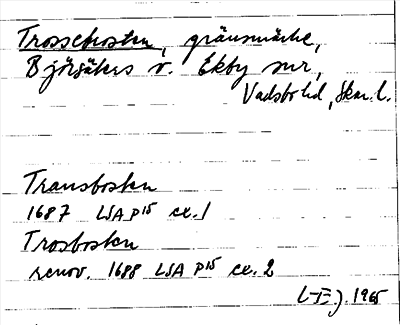 Trossebosten, gränsmärke,
Björsäters o. Ekby snr,
Vadsbo hd, Skar. l.
Transbosten
1687 LSA P15 ex. 1
Trosbosten
renov. 1688 LSA P15 ex. 2
1965